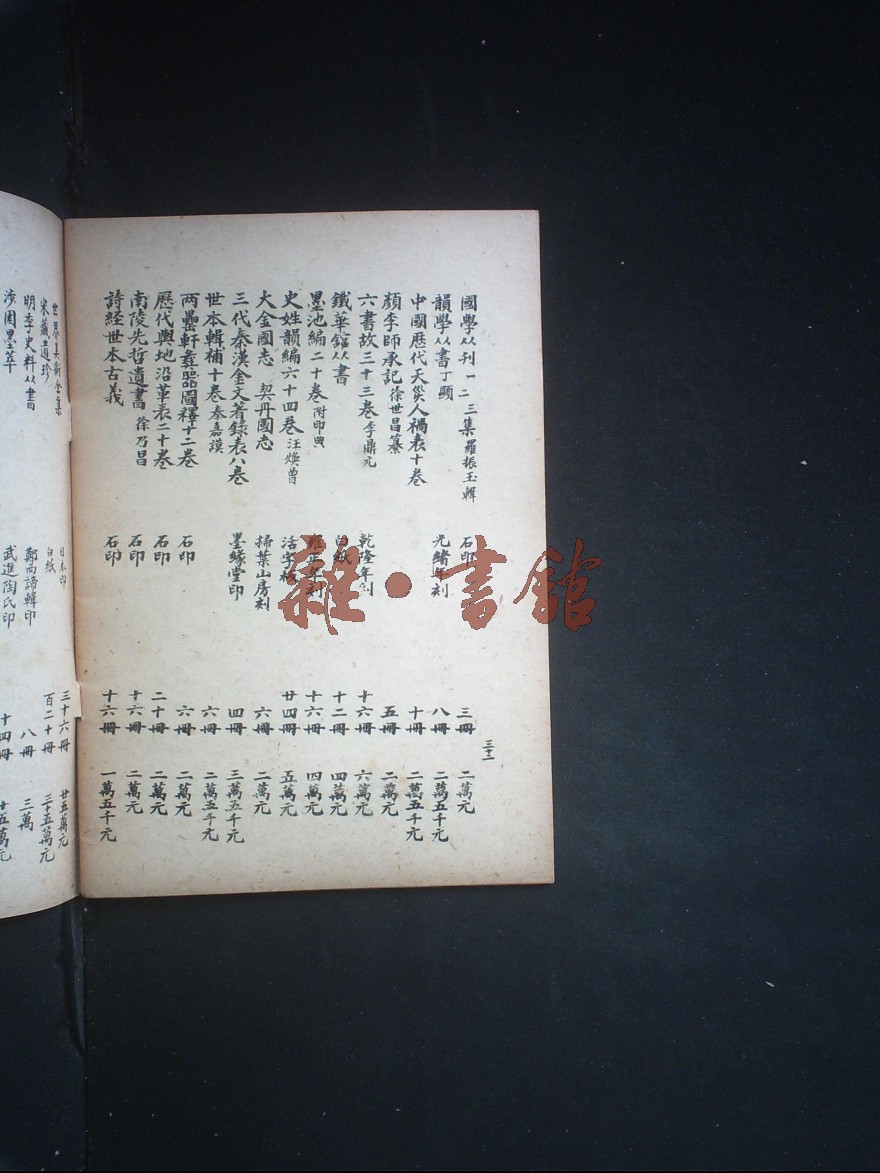 國學丛刊一二三集 羅振玉輯 石印 三冊 二萬元
韻學丛書 丁顯 光緒年刻 八冊 二萬五千元
中國歷代天災人禍表十卷 十冊 二萬五千元
顏李師承記 徐世昌纂 五冊 二萬元
六書故三十三卷 李鼎元 乾隆年刻 十六冊 六萬元
鐵華館丛書 白紙 十二冊 四萬元
墨池編二十卷 附印典 雍正年刻 十六冊 四萬元
史姓韻編六十四卷 汪煥曾 活字板 廿四冊 五萬元
大金國志 契丹國志 掃葉山房刻 六冊 二萬元
三代秦漢金文著錄表八卷 墨緣堂印 四冊 三萬五千元
世本輯補十卷 秦嘉謨 六冊 二萬五千元
两罍軒彝器圖釋十二卷 石印 六冊 二萬元
歷代輿地沿革表二十卷 石印 二十冊 二萬元
南陵先哲遺書 徐乃昌 石印 十六冊 二萬元
詩经世本古義 石印 十六冊 一萬五千元
三十二
世界美術全集 日本印 三十六冊 廿五萬元
宋藏遺珍 白紙 百二十冊 三十五萬元
明季史料丛書 鄭西諦輯印 八冊 三萬
涉園墨萃 武進陶氏印 十四冊 廿五萬元
雜·書館